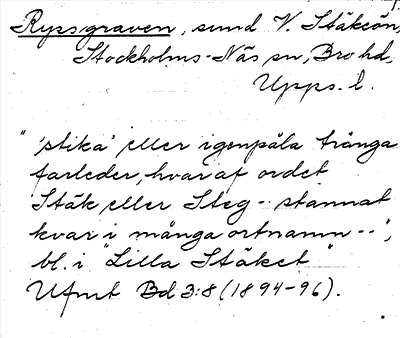 Ryssgraven, sund V. Stäksön,
Stockholms-Näs sn, Bro hd,
Upps. l.
"'stika' eller igenpåla trånga
farleder, hvaraf ordet
Stäk eller Steg -- stannat
kvar i många ortnamn --",
bl. i "Lilla Stäket"
Ufmt Bd 3:8 (1894-96).